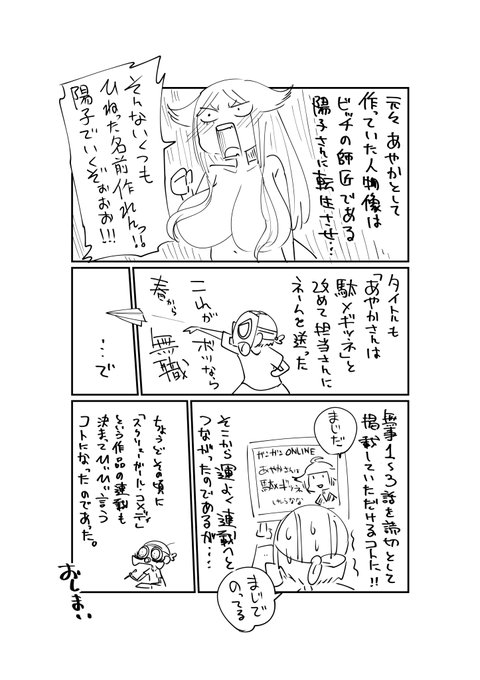 元々あやかとして
作っていた人物像は
ビッチの師匠である
陽子さんに転生させ…
そんないくつも
ひねった名前作れんっ!!
陽子でいくぞぉぉぉ!!!
タイトルも
「あやかさんは
駄メギツネ」と
改めて担当さんに
ネームを送った
これが
ボツなら
春から
無職
…で
無事1～3話を読切として
掲載していただけるコトに!!
まじだ
ガンガンONLINE
あやかさんは
駄メギツネ
まじで
のってる
そこから運よく連載へと
つながったのであるが…
ちょうどその頃に
「スクリューガール・コメディ」
という作品の連載も
決まってひぃひぃ言う
コトになったのであった。
おしまい